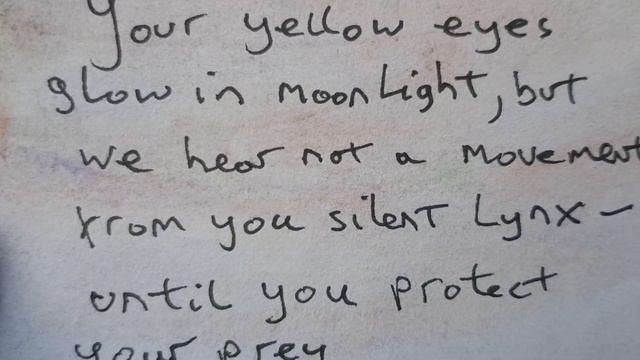 Your yellow eyes
glow in moonlight, but
we hear not a movement
from you silent Lynx –
until you protect
your prey